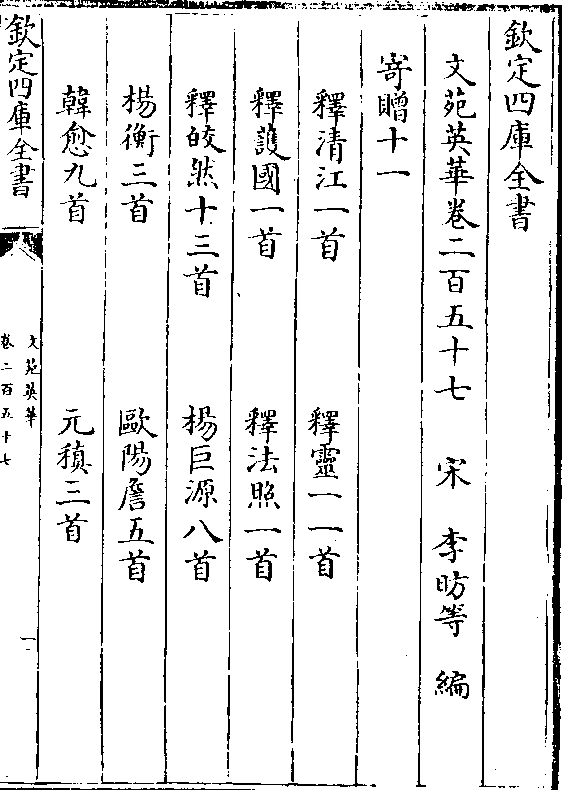 欽定四庫全書
文苑英華卷二百五十七 宋 李昉等 編
寄贈十一
釋清江一首 釋靈一一首
釋護國一首 釋法照一首
釋皎然十三首 楊巨源八首
楊衡三首 歐陽詹五首
韓愈九首 元稹三首
欽定四庫全書
文苑英華
卷二百五十七
一